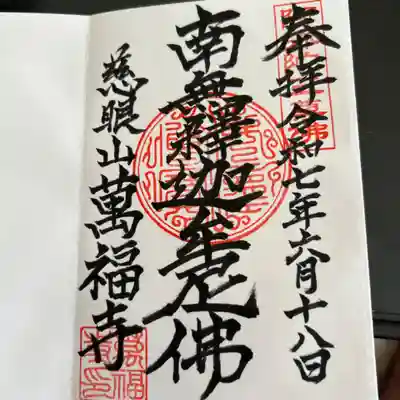 奉拝令和七年六月十八日
南無釋迦牟尼佛
慈眼山萬福寺